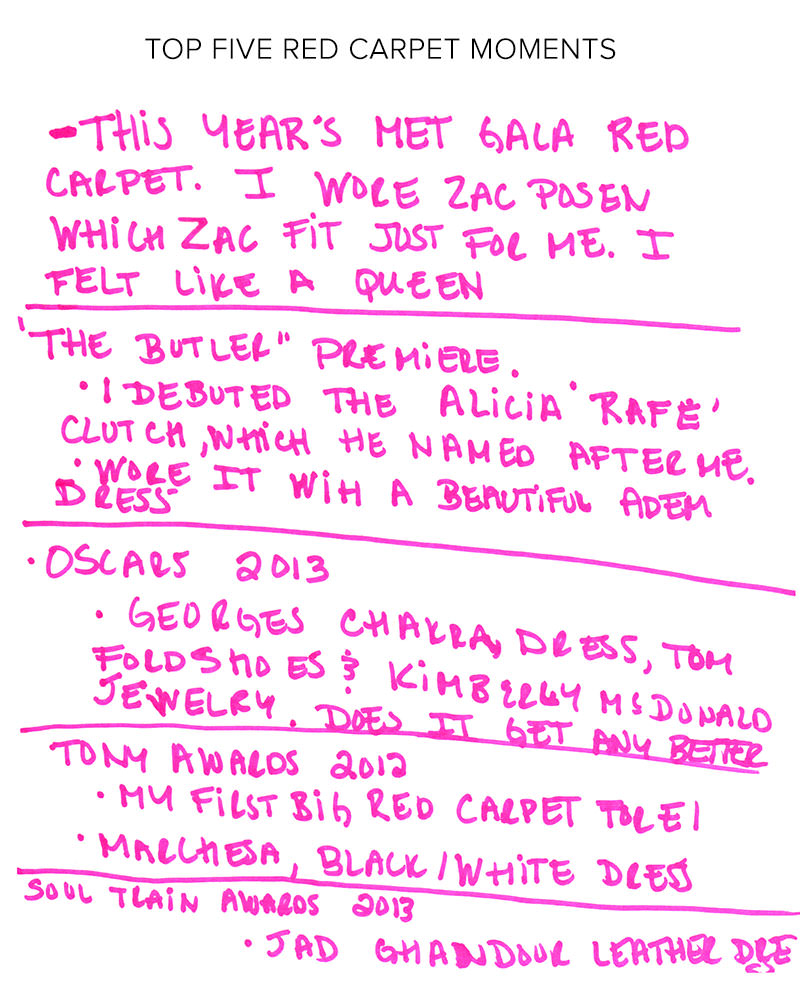 TOP FIVE RED CARPET MOMENTS
-THIS YEAR'S MET GALA RED
CARPET. I WORE ZAC POSEN
WHICH ZAC FIT JUST FOR ME. I
FELT LIKE A QUEEN
"THE BUTLER" PREMIERE.
• I DEBUTED THE ALICIA 'RAFE'
CLUTCH, WHICH HE NAMED AFTER ME.
• WORE IT WIH A BEAUTIFUL ADEM
DRESS
• OSCARS 2013
• GEORGES CHAKRA, DRESS, TOM
FORD SHOES & KIMBERLY McDONALD
JEWELRY. DOES IT GET ANY BETTER
TONY AWARDS 2012
• MY FIRST BIG RED CARPET
• MARCHESA, BLACK/WHITE DRESS
SOUL TRAIN AWARDS 2013
• JAD GHANDOUR LEATHER DRE